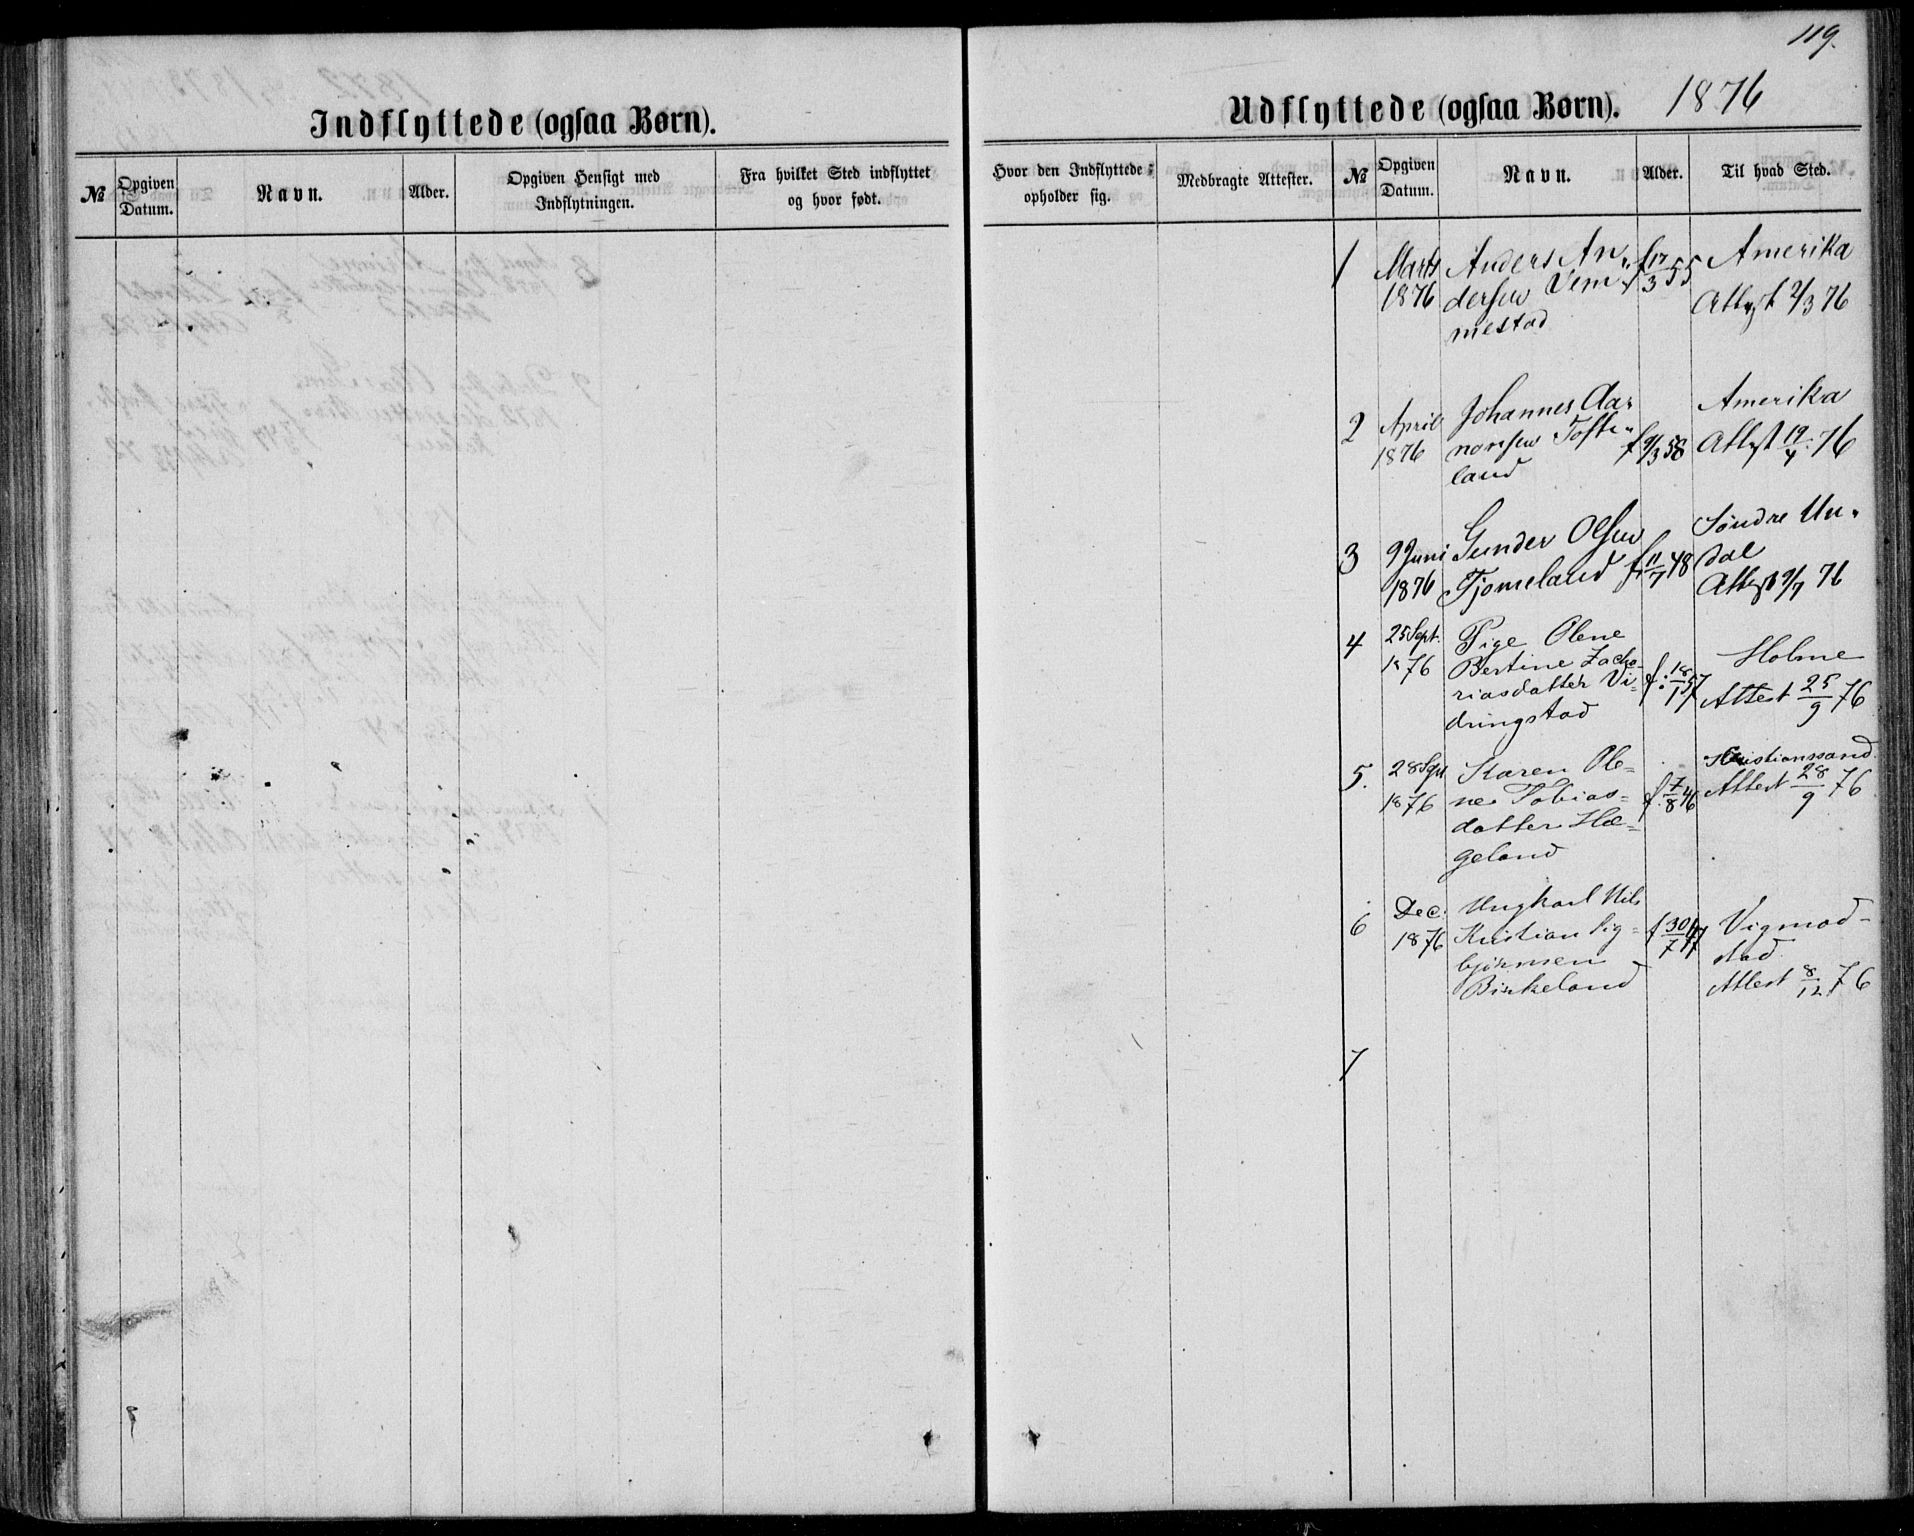 119.
Indflyttede (ogsaa Børn).
№
Opgiven
Datum.
Navn.
Alder.
Opgiven Hensigt med
Indflytningen.
Fra hvilket Sted indflyttet
og hvor født.
Udflyttede (ogsaa Børn). 1876
Hvor den Indflyttede
opholder sig.
Medbragte Attester.
№
Opgiven
Datum.
Navn.
Alder.
Til hvad Sted.
1 Marts Anders An- f 17/3 55 Amerika
1876 dersen Vem- Attest 2/3 76
mestad
2 April Johannes Aa- Amerika
1876 nonsen Tofte- f 9/3 58 Attest 19/4 76
land
3 9 Juni Gunder Olsen f 11/7 48 Søndre Un-
1876 Tjomeland dal
Attest 9/7 76
4 25 Sept. Pige Olene
1876 Bertine Zacha- f: 18/1 57 Holme
riasdatter Vi- Attest 25/9 76
dringstad
5. 28 Sept Karen Ole- f. 7/8 46 Kristianssand
1876 ne Tobias- Attest 28/9 76
datter Hæ-
geland
6 Dec. Ungkarl Nils
1876 Kristian Sig- f 30/7 47 Vigmod-
bjørnsen stad
Birkeland Attest 8/12 76
7